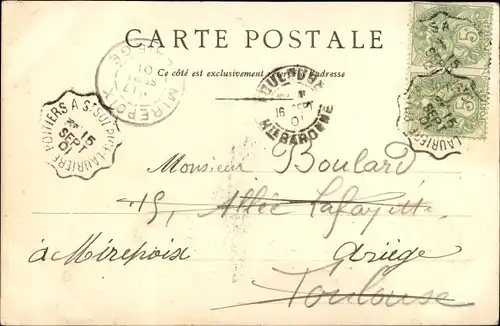 CARTE POSTALE
Ce côté est exclusivement réservé à l'adresse
MIREPOIX
POITIERS A St-SULPICE-LAURIERE
15
SEPT
01
16
01
Monsieur Boulard
15, Allée Lafayette
à Mirepoix Ariège
Toulouse
5
5